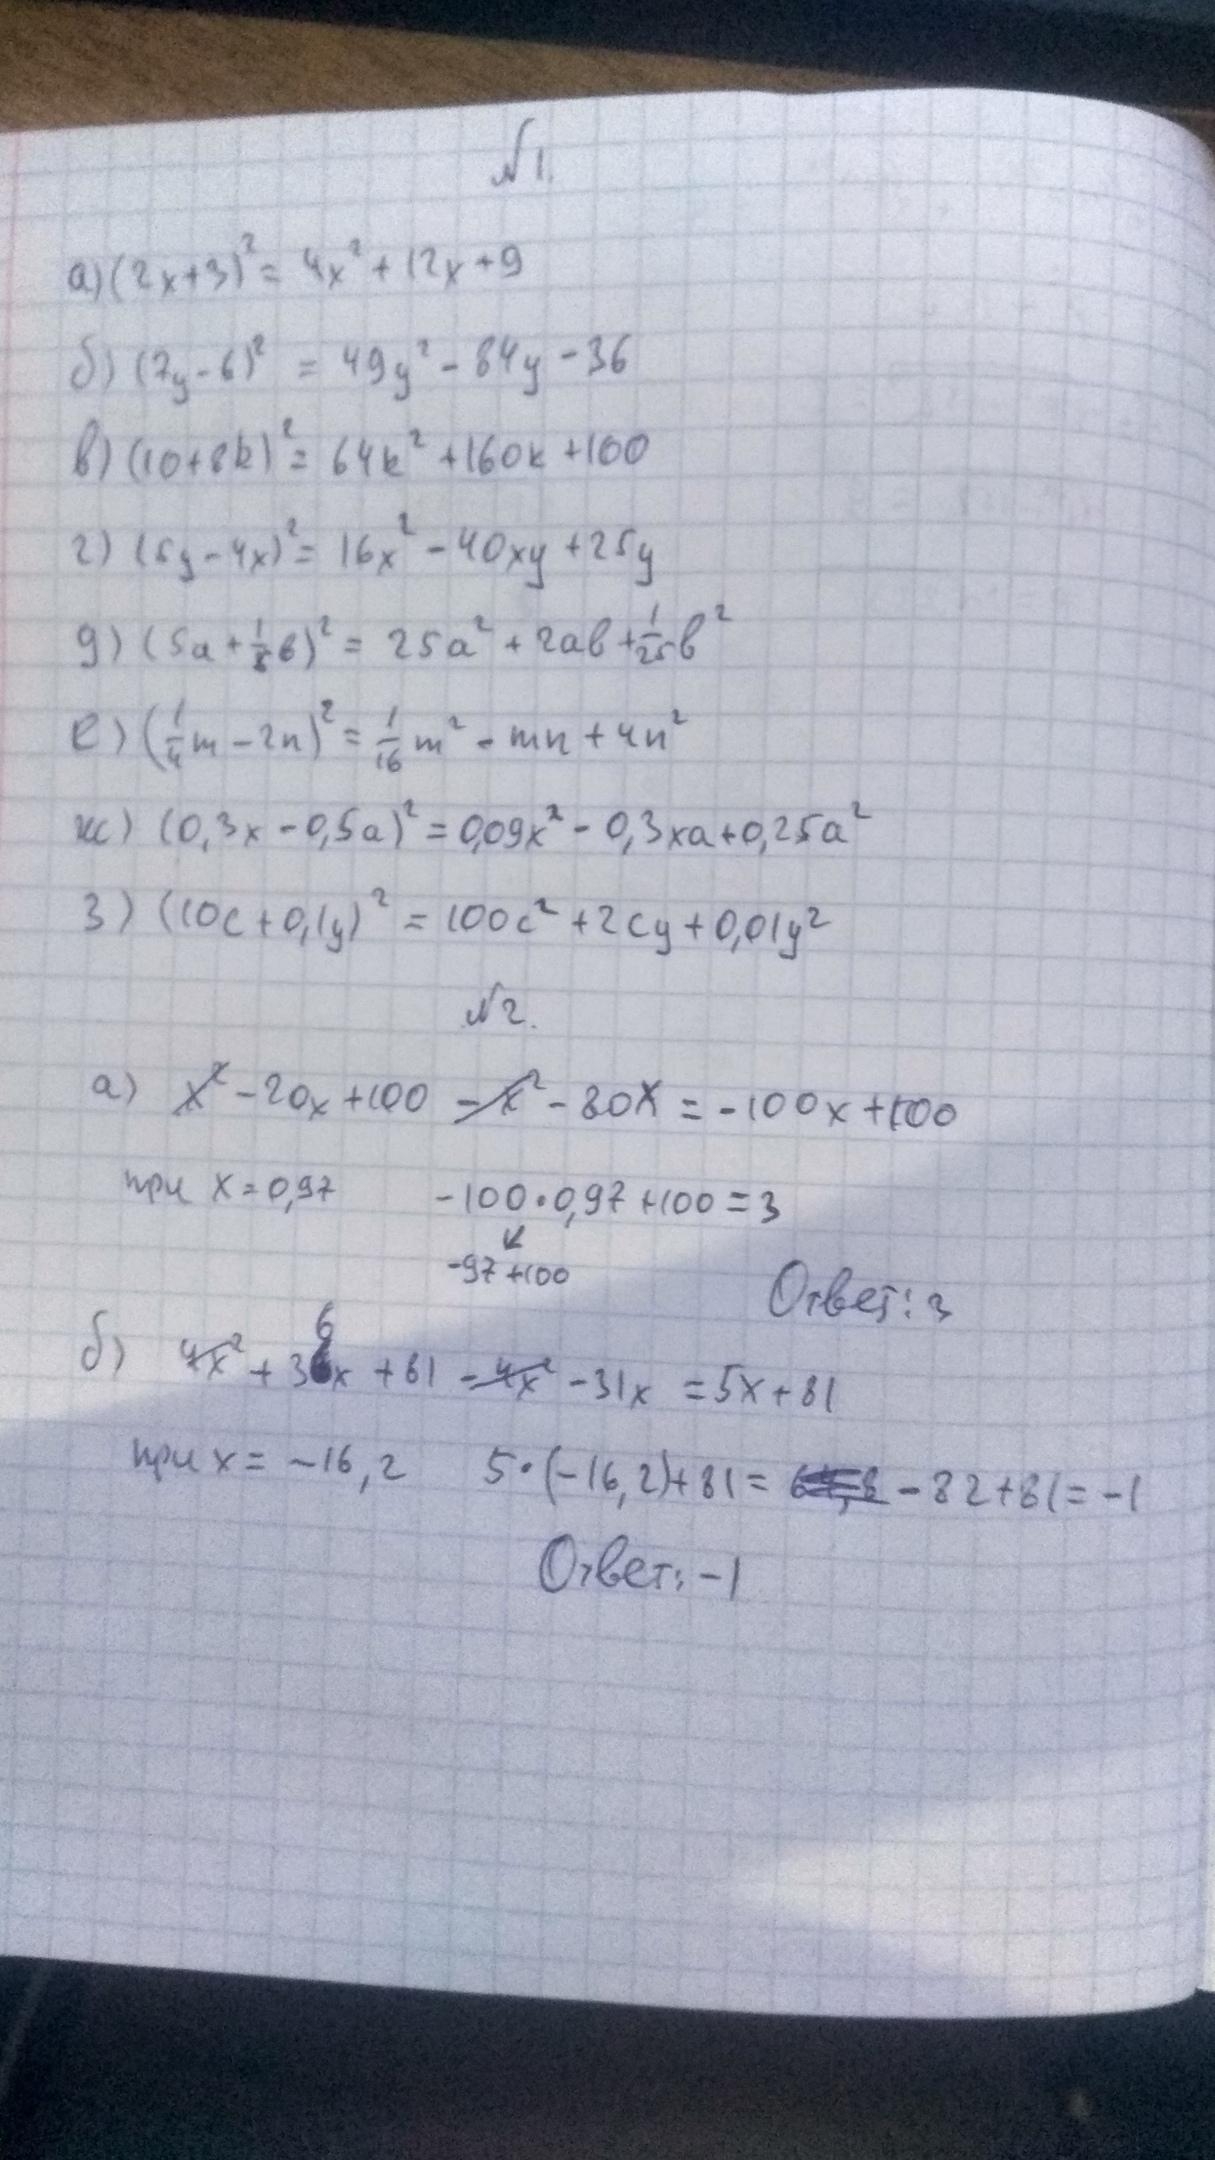 №1.
а) (2x+3)² = 4x² + 12x + 9
б) (7y-6)² = 49y² - 84y - 36
в) (10+8k)² = 64k² + 160k + 100
г) (5y-4x)² = 16x² - 40xy + 25y
д) (5a + 1/5 b)² = 25a² + 2ab + 1/25 b²
е) (1/4 m - 2n)² = 1/16 m² - mn + 4n²
ж) (0,3x - 0,5a)² = 0,09x² - 0,3xa + 0,25a²
з) (10c + 0,1y)² = 100c² + 2cy + 0,01y²
№2.
а) x² - 20x + 100 - x² - 80x = -100x + 100
при x = 0,97 -100·0,97 + 100 = 3
↙
-97 + 100
Ответ: 3
6
б) 4x² + 36x + 81 - 4x² - 31x = 5x + 81
при x = -16,2 5·(-16,2) + 81 = -82 + 81 = -1
Ответ: -1